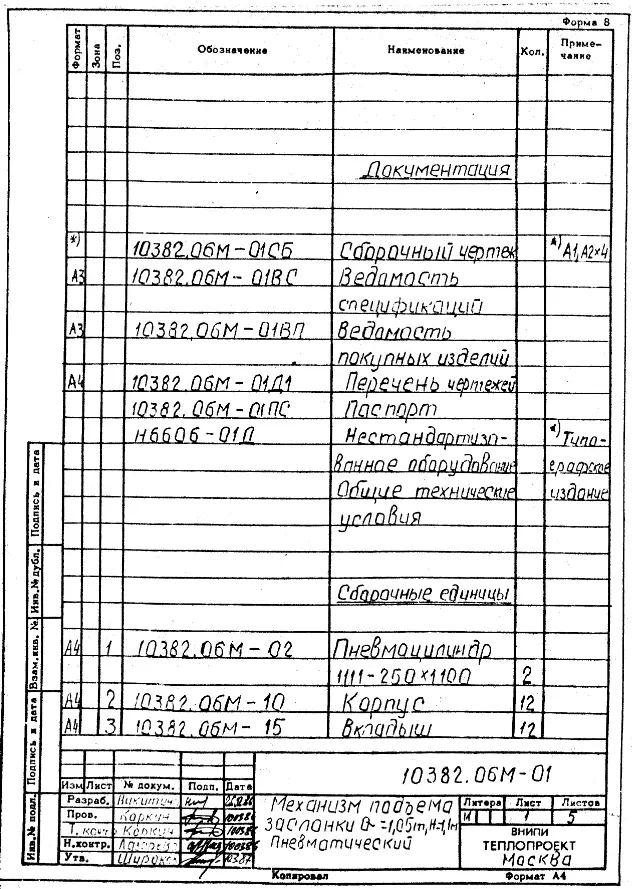 Форма 8
Формат Зона Поз. Обозначение Наименование Кол. Приме-
чание
Документация
*) 10382.06М-01СБ Сборочный чертеж *) А1, А2×4
А3 10382.06М-01ВС Ведомость
спецификаций
А3 10382.06М-01ВП Ведомость
покупных изделий
А4 10382.06М-01Д1 Перечень чертежей
10382.06М-01ПС Паспорт
Н6606-01Д Нестандартизо- *) Типо-
ванное оборудование графское
Общие технические издание
условия
Сборочные единицы
А4 1 10382.06М-02 Пневмоцилиндр
1111-250×1100 2
А4 2 10382.06М-10 Корпус 12
А4 3 10382.06М-15 Вкладыш 12
Подпись и дата
Инв.№ дубл.
Взам.инв. №
Подпись и дата
Инв.№ подл.
10382.06М-01
Изм Лист № докум. Подп. Дата
Разраб. Никитин
Пров. Коркин
Т.контр Коркин
Н.контр.
Утв.
Механизм подъема
заслонки =1,05т, Н=1,1м
пневматический
Литера Лист Листов
И 1 5
ВНИПИ
ТЕПЛОПРОЕКТ
Москва
Копировал Формат А4